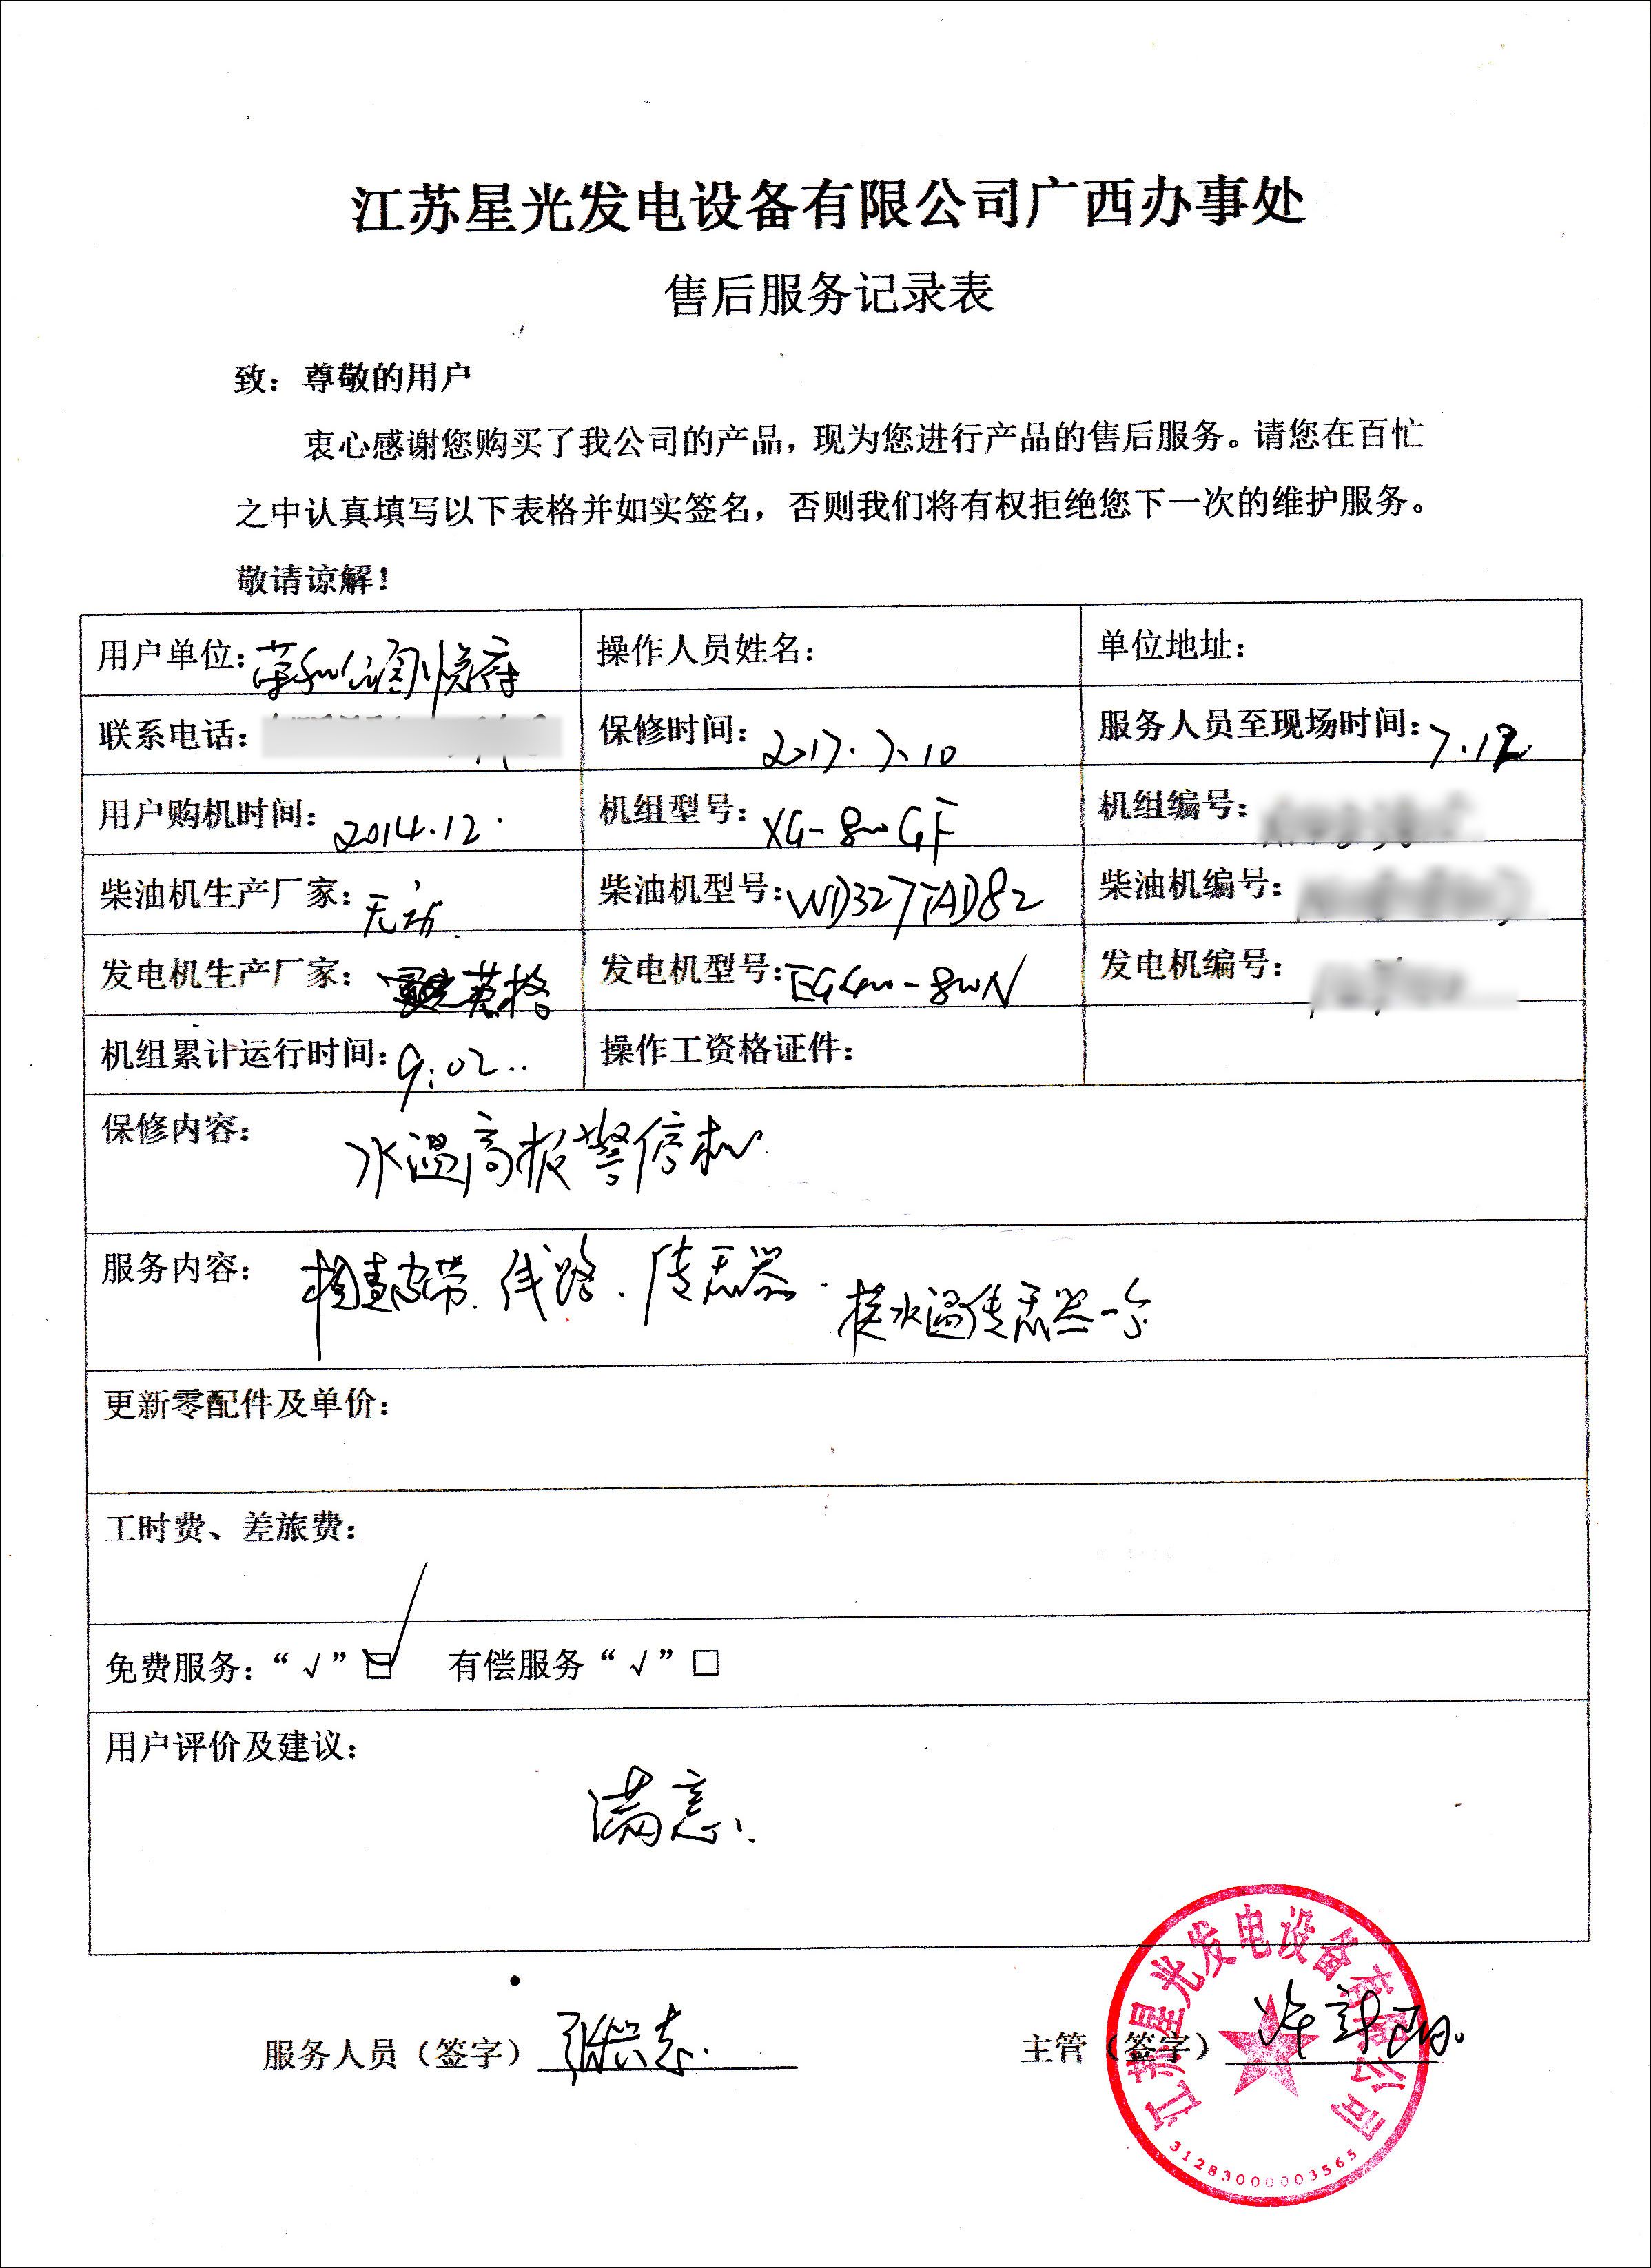 江苏星光发电设备有限公司广西办事处
售后服务记录表
致：尊敬的用户
衷心感谢您购买了我公司的产品，现为您进行产品的售后服务。请您在百忙
之中认真填写以下表格并如实签名，否则我们将有权拒绝您下一次的维护服务。
敬请谅解！
用户单位：荣和公园悦府 操作人员姓名： 单位地址：
联系电话： 保修时间：2017.7.10 服务人员至现场时间：7.12
用户购机时间：2014.12. 机组型号：XG-800GF 机组编号：
柴油机生产厂家：无动. 柴油机型号：WD327TAD82 柴油机编号：
发电机生产厂家：英格 发电机型号：EG400-800N 发电机编号：
机组累计运行时间：9:02.. 操作工资格证件：
保修内容： 水温高报警停机.
服务内容： 检查皮带、线路、传感器. 换水温传感器一个
更新零配件及单价：
工时费、差旅费：
免费服务：“√”☑ 有偿服务“√”□
用户评价及建议：
满意、
服务人员（签字） 张兴志.
主管（签字）
江苏星光发电设备有限公司
31283000003565